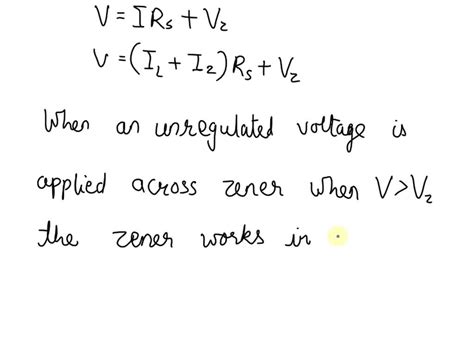 V = I Rs + Vz
V = (IL + Iz) Rs + Vz
When an unregulated voltage is
applied across zener when V > Vz
the zener works in